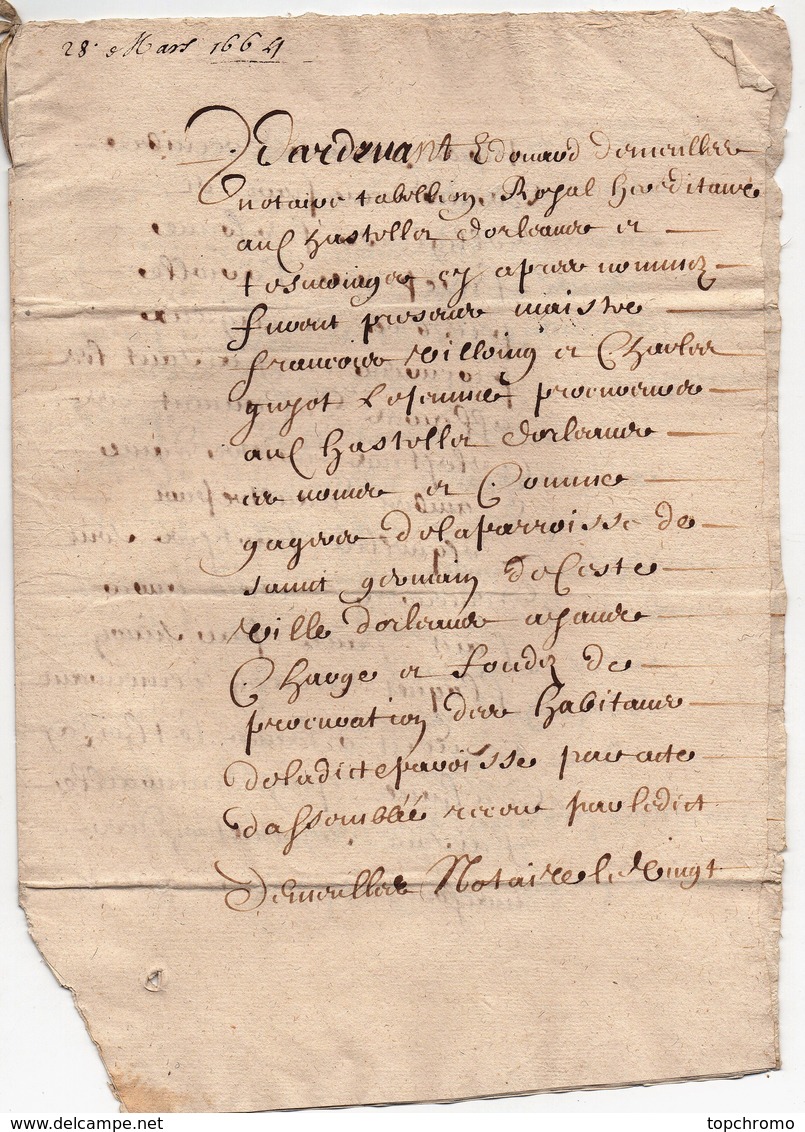 28e Mars 1664
Pardevant Edouard Demeulles
notaire tabellion Royal hereditaire
au Chastellet dorleans et
tesmoings cy apres nommez
furent presens maistre
francois Villoing et Charles
guyot Lesenne procureurs
au Chastellet dorleans
es noms et Comme
gagers de la parroisse de
sainct germain de Ceste
ville dorleans ayans
Charge et fondez de
procuration des habitans
de la dicte paroisse par acte
dassemblée receue par ledict
Demeulles Notaire le Vingt
topchromo
www.delcampe.net